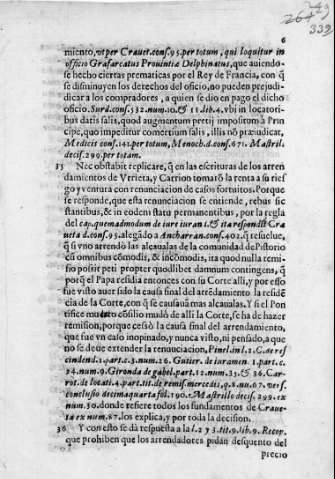 6
miento, vt per Crauet. conf. 95. per totum, qui loquitur in
officio Grafarcatus Prouintiæ Delphinatus, que auiendo-
se hecho ciertas prematicas por el Rey de Francia, con q̃
se disminuyen los derechos del oficio, no pueden prejudi-
dicar a los compradores, a quien se dio en pago el dicho
oficio. Surd. conf. 532. num. 10. & 11. lib. 4. vbi in locatori-
bus datis salis, quod augmentum pretij impositum à Prin
cipe, quo impeditur comertium salis, illis nõ præiudicat,
Medicis conf. 141. per totum, Menoch. d. conf. 671. Mastril.
decis. 299. per totam.
35 Nec obstabit replicare, q̃ en las escrituras de los arren
damientos de Vrieta, y Carrion tomarõ la renta a su ries
go y ventura con renunciacion de casos fortuitos. Porque
se responde, que esta renunciacion se entiende, rebus sic
stantibus, & in eodem statu permanentibus, por la regla
del cap. quemadmodum de iure iuran. & ita respondit Cra
ueta d. conf. 95. alegado à Ancharran. conf. 402. q̃ resuelue,
q̃ si vno arrendò las alcaualas de la comunidad de Pistorio
cũ omnibus cõmodis, & incõmodis, ita quod nulla remis-
sio possit peti propter quodlibet damnum contingens, q̃
porq̃ el Papa residia entonces con su Corte alli, y por esso
fue visto auer sido la causa final del arrẽdamiento la residẽ
cia de la Corte, con q̃ se causauã mas alcaualas. Y si el Pon
tifice mudò cõsilio mudò de alli la Corte, se ha de hazer
remision, porque cessò la causa final del arrendamiento,
que fue vn caso inopinado, y nunca visto, ni pensado, a que
no se deue extender la renunciacion, Pinel. in l. 2. C. de res
cindend. 1. part. c. 3. num. 26. Gutier. de iuramen. 1. part. c.
24. num. 9. Gironda de gabel. part. 12. num. 35. & 36. Car-
rot. de locati. 4. part. tit. de remis. mercedis, q. 8. nu. 67. vers.
conclusio decimaquarta fol. 190. Mastrillo decis. 299. ex
num. 50. donde refiere todos los fundamentos de Craue-
ta ex num. 67. los explica, y por toda la decision.
36 Y con esto se dà respuesta a la l. 2. y 3. tit. 9. lib. 9. Recop.
que prohiben que los arrendadores pidan desquento del
precio